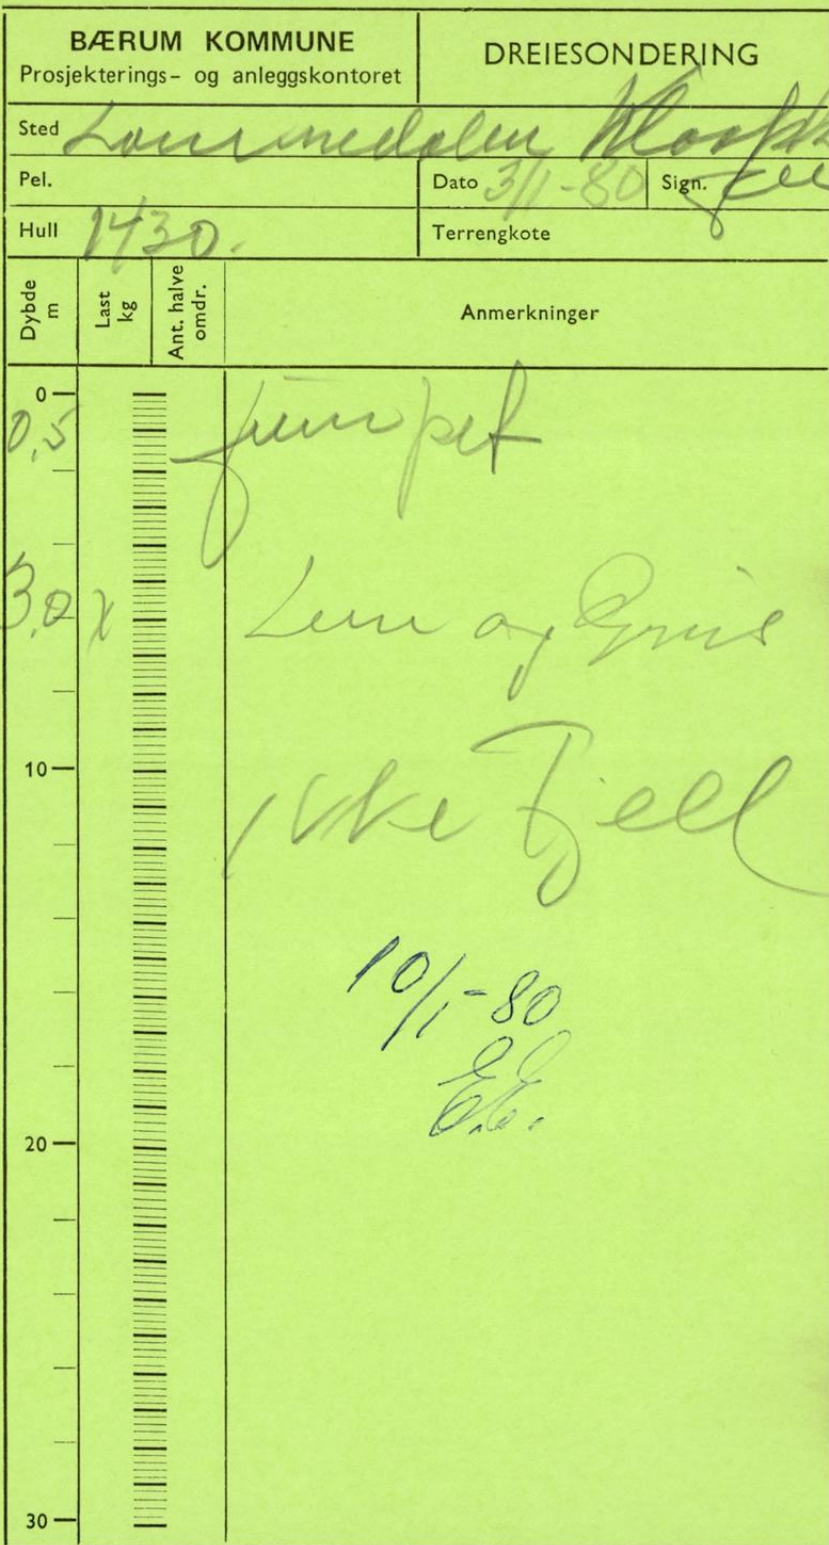 BÆRUM KOMMUNE
Prosjekterings- og anleggskontoret
DREIESONDERING
Sted Lommedalen
Pel.
Dato 3/1-80
Sign.
Hull 1430.
Terrengkote
Dybde m
Last kg
Ant. halve omdr.
Anmerkninger
0
0,5
3,0 x
Leire og Grus
10
Ikke Fjell
10/1-80
E.E.
20
30